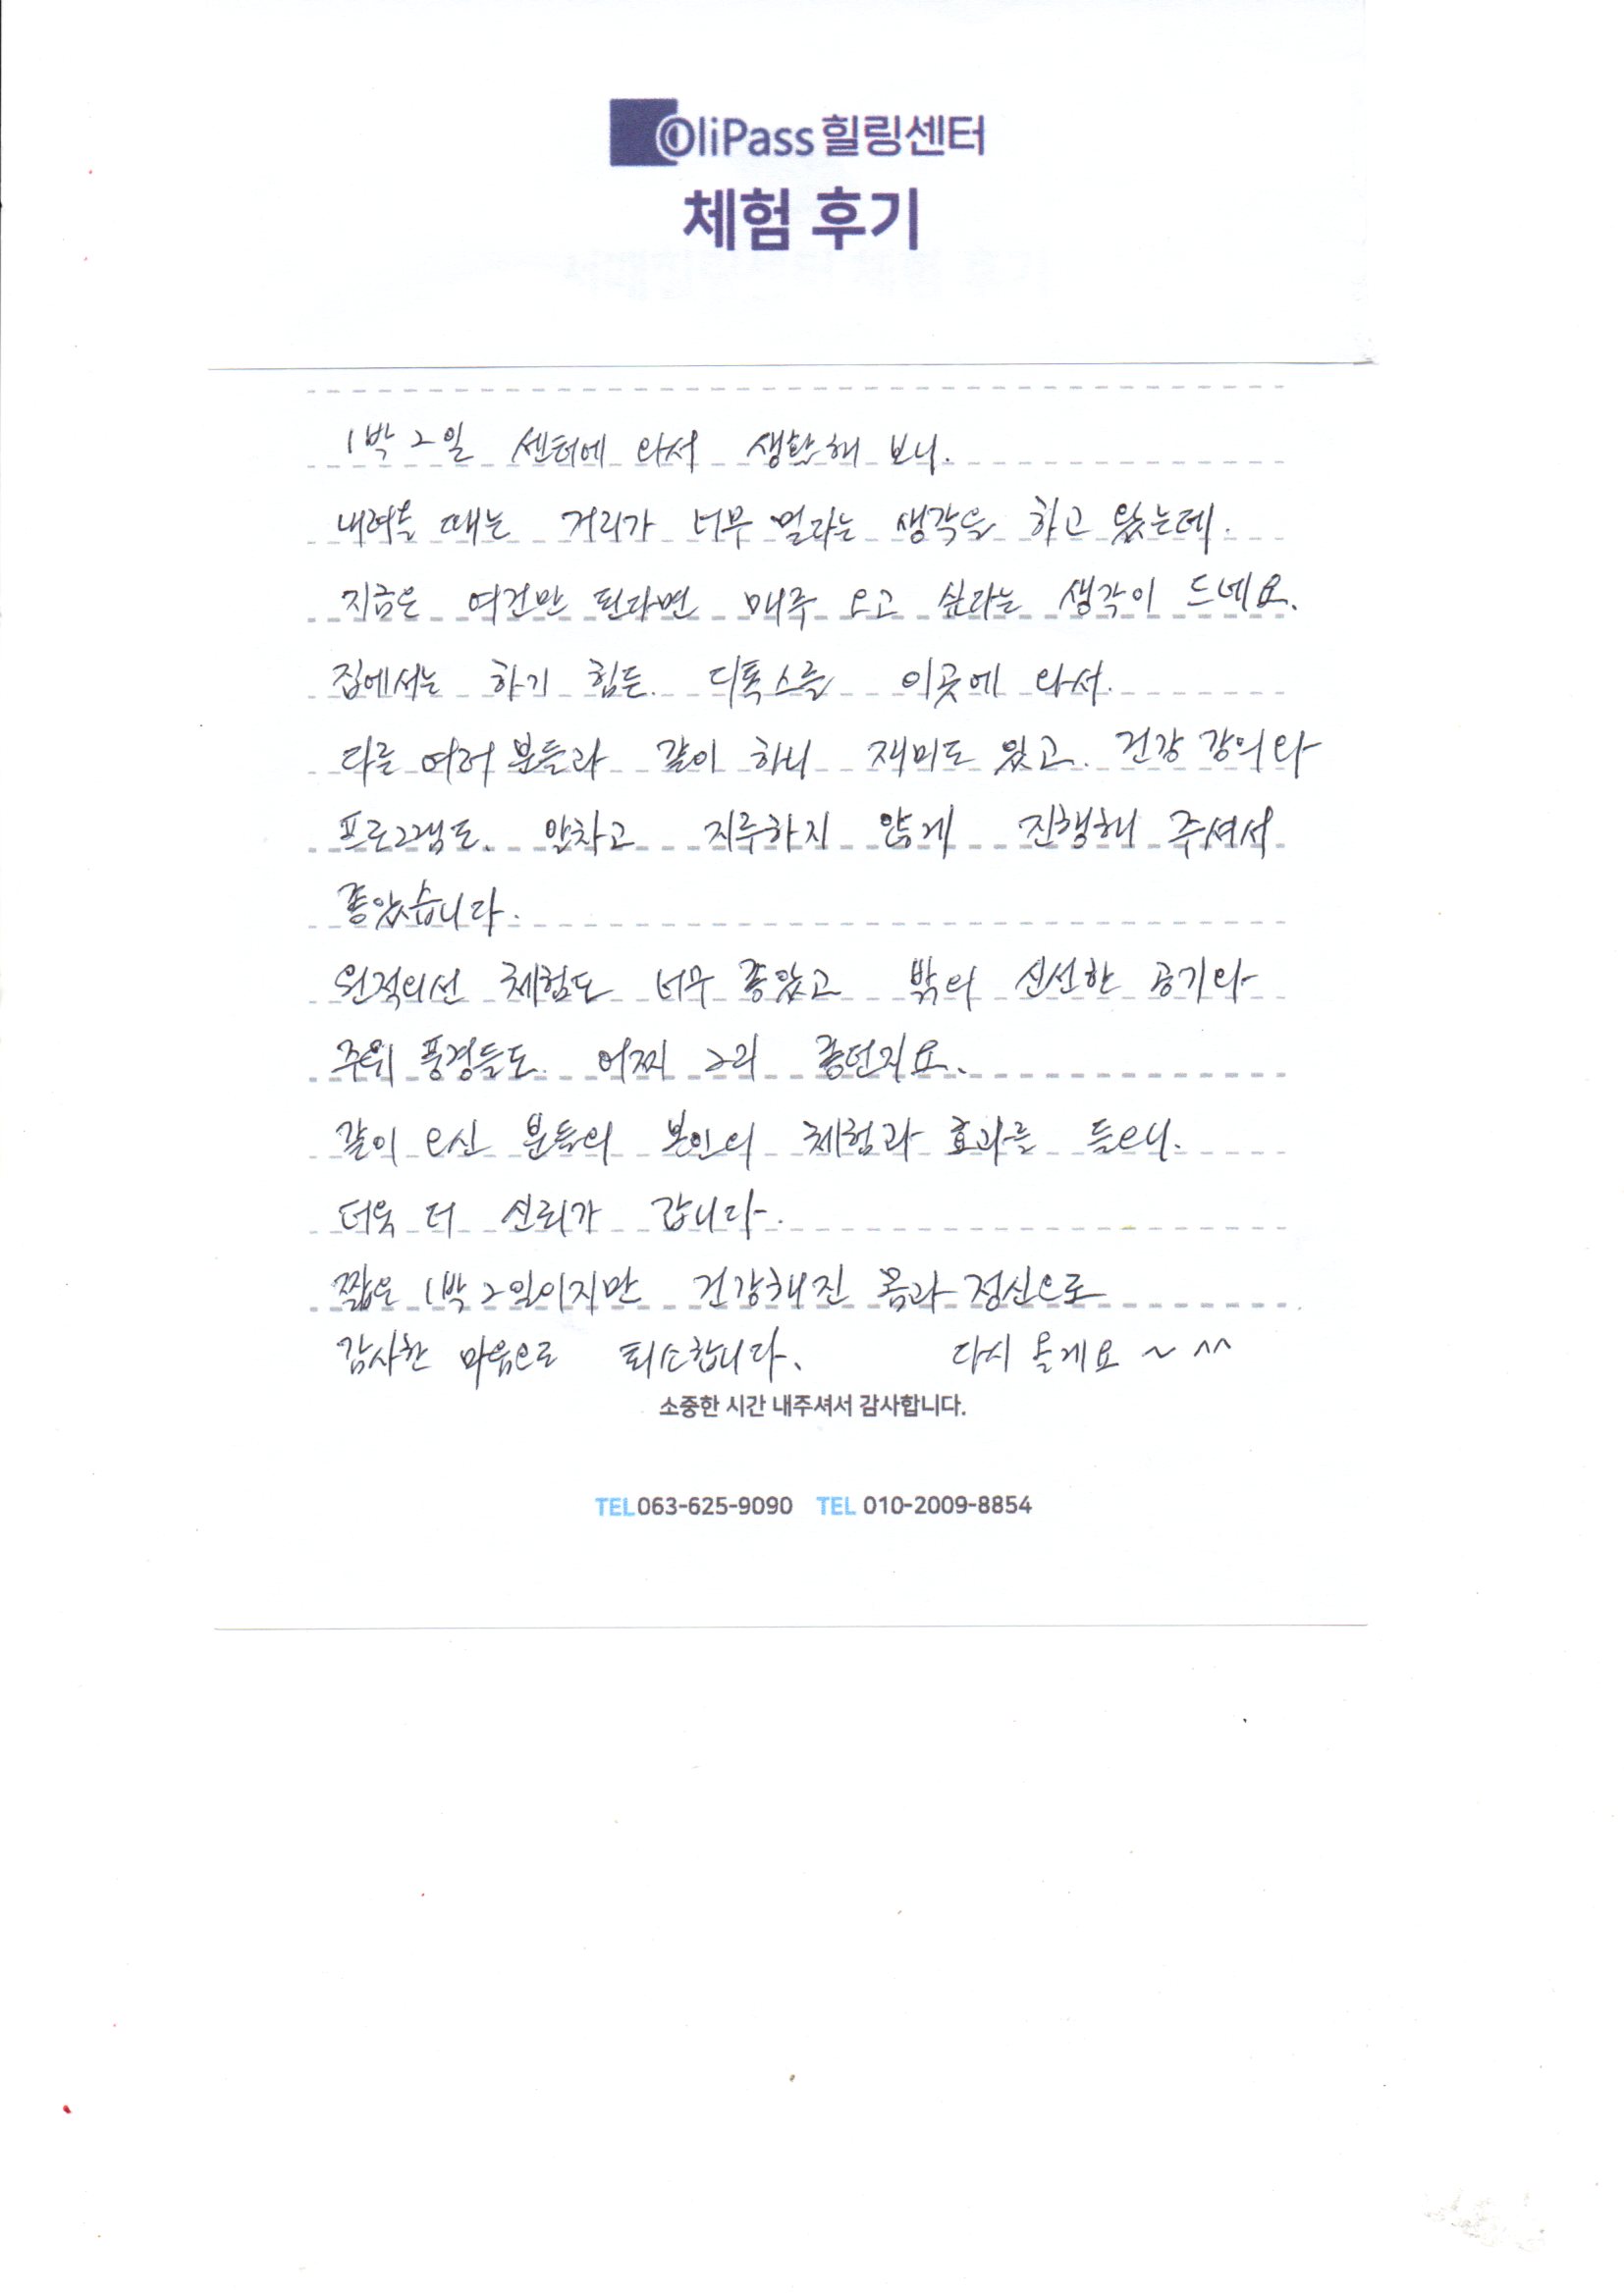 OliPass 힐링센터
체험 후기
1박 2일 센터에 와서 생활해 보니.
내려올 때는 거리가 너무 멀다는 생각을 하고 왔는데.
지금은 여건만 된다면 매주 오고 싶다는 생각이 드네요.
집에서는 하기 힘든. 디톡스를 이곳에 와서.
다른 여러 분들과 같이 하니 재미도 있고. 건강 강의와
프로그램도. 알차고 지루하지 않게 진행해 주셔서
좋았습니다.
원적외선 체험도 너무 좋았고 밖의 신선한 공기와
주위 풍경들도. 어찌 그리 좋던지요.
같이 오신 분들의 본인의 체험과 효과를 들으니.
더욱 더 신뢰가 갑니다.
짧은 1박 2일이지만 건강해진 몸과 정신으로
감사한 마음으로 퇴소합니다. 다시 올게요 ~ ^^
소중한 시간 내주셔서 감사합니다.
TEL 063-625-9090 TEL 010-2009-8854